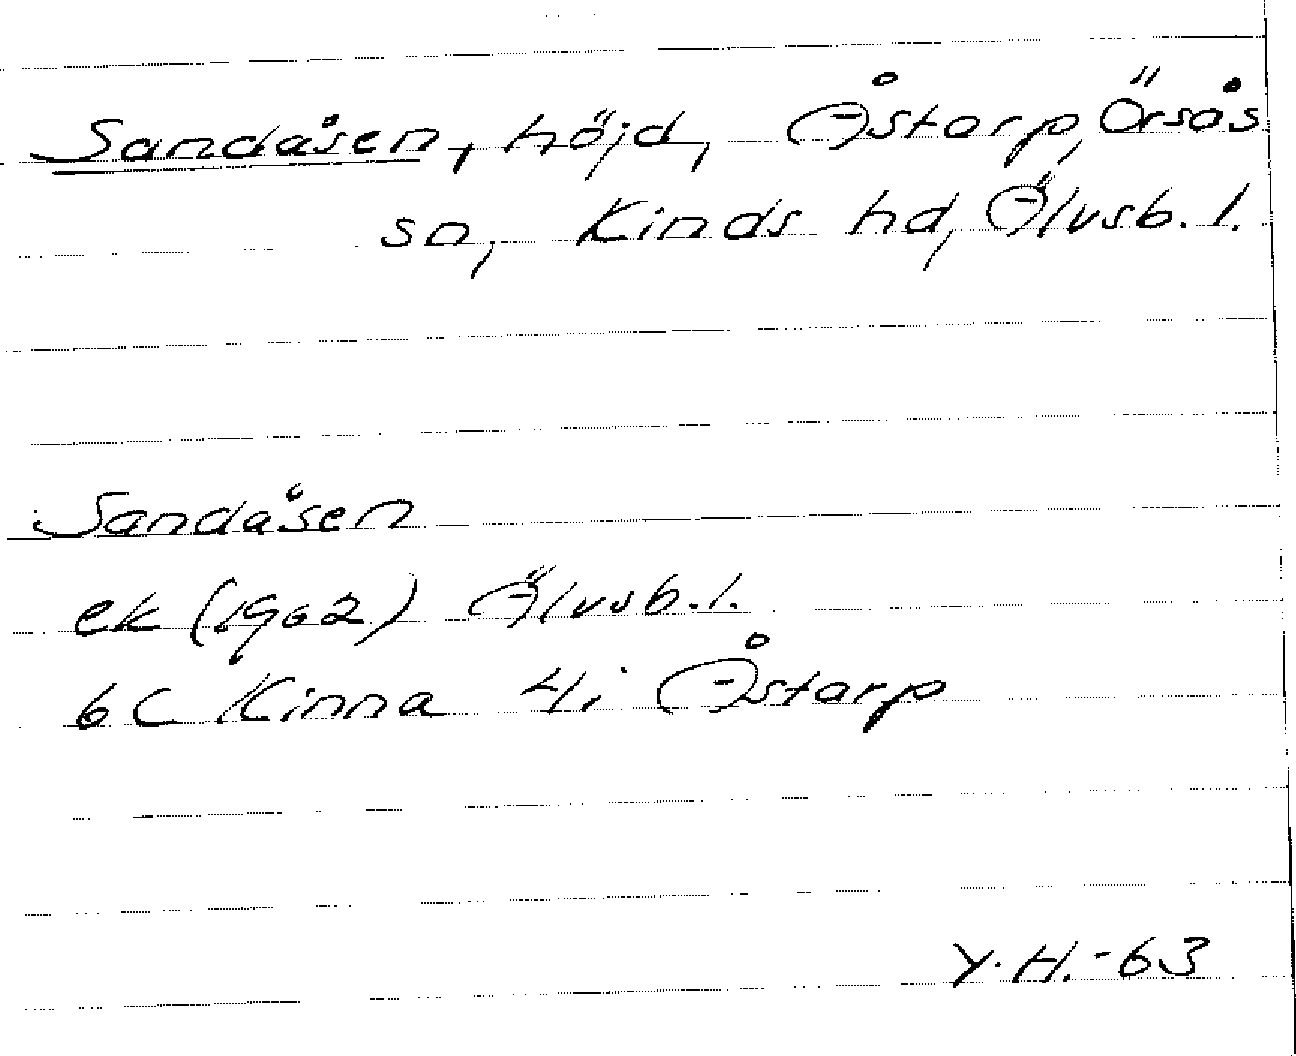 Sandåsen, höjd, Åstarp, Örsås
sn, Kinds hd, Älvsb. l.
Sandåsen
ek (1962) Älvsb. l.
6C Kinna 4i Åstarp
Y. H. -63